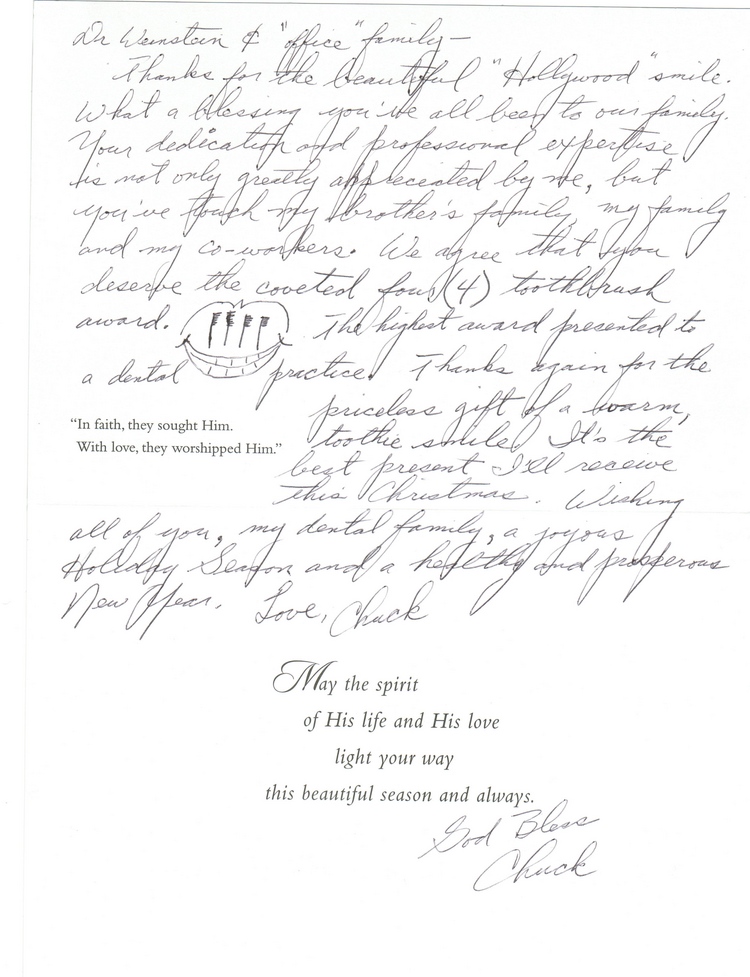 Dr Weinstein & "office" family—
Thanks for the beautiful "Hollywood" smile.
What a blessing you've all been to our family.
Your dedication and professional expertise
is not only greatly appreciated by me, but
you've touch my brother's family, my family
and my co-workers. We agree that you
deserve the coveted four (4) toothbrush
award. The highest award presented to
a dental practice. Thanks again for the
priceless gift of a warm,
toothie smile! It's the
best present I'll receive
this Christmas. Wishing
"In faith, they sought Him.
With love, they worshipped Him."
all of you, my dental family, a joyous
Holiday Season and a healthy and prosperous
New Year. Love, Chuck
May the spirit
of His life and His love
light your way
this beautiful season and always.
God Bless
Chuck